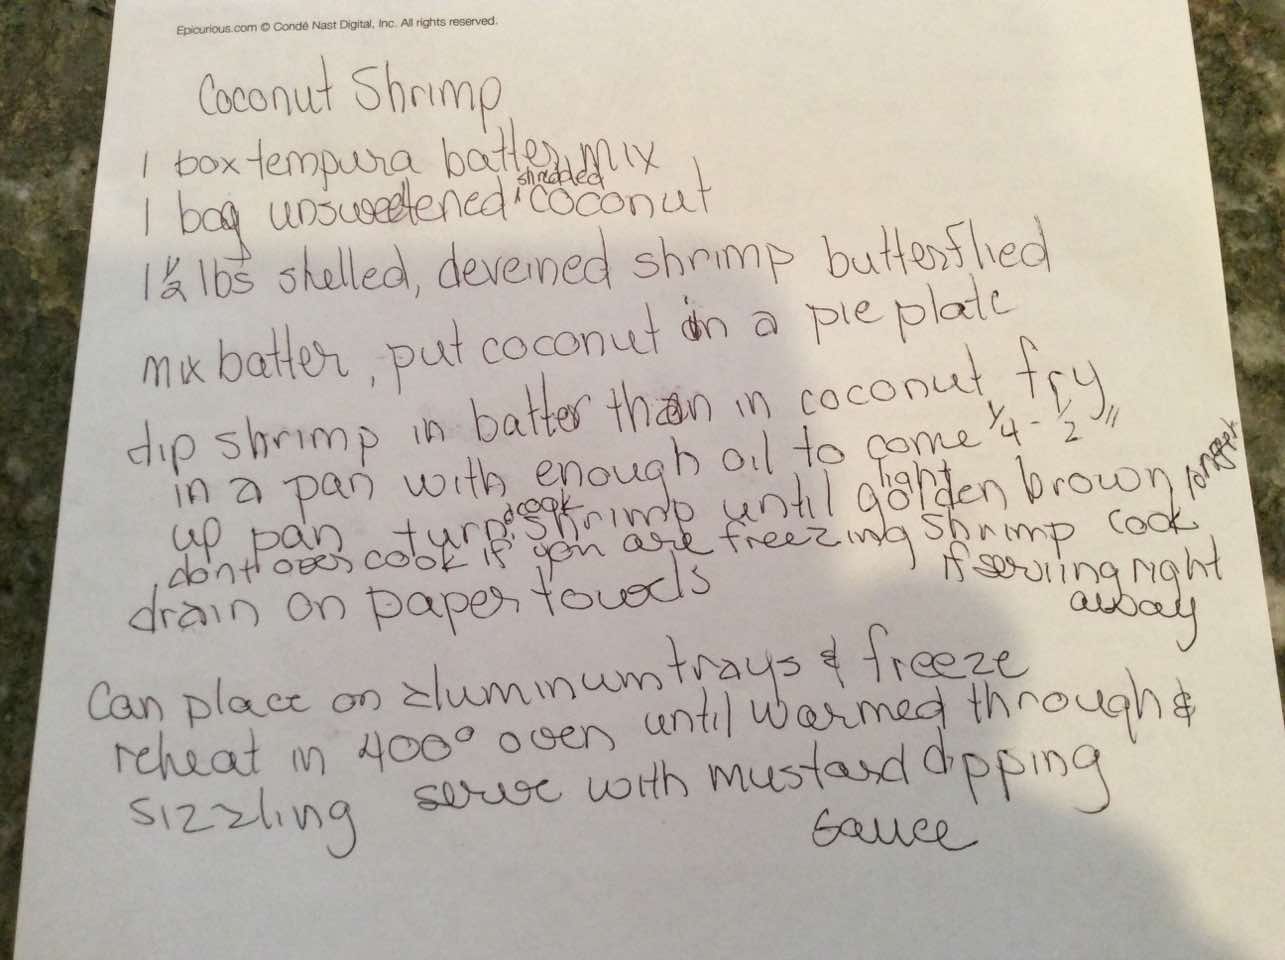 Epicurious.com © Condé Nast Digital, Inc. All rights reserved.
Coconut Shrimp
1 box tempura batter mix
1 bag unsweetened shredded coconut
1 1/2 lbs shelled, deveined shrimp butterflied
mix batter, put coconut in a pie plate
dip shrimp in batter then in coconut fry
in a pan with enough oil to come 1/4 - 1/2"
up pan turn & cook shrimp until light golden brown
dont over cook if you are freezing shrimp cook longer
if serviing right
away
drain on paper towels
Can place on aluminum trays & freeze
reheat in 400° oven until warmed through &
sizzling serve with mustard dipping
sauce